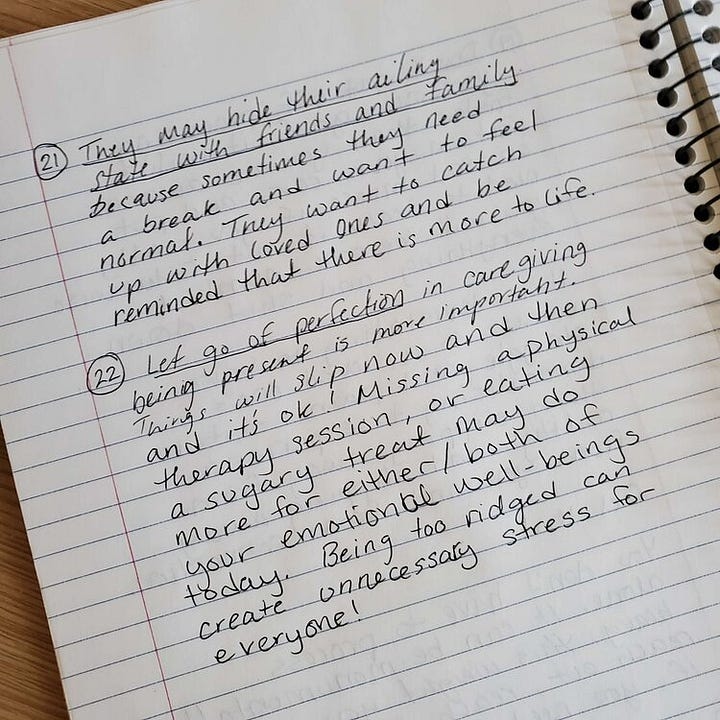 21) They may hide their ailing
state with friends and family
because sometimes they need
a break and want to feel
normal. They want to catch
up with loved ones and be
reminded that there is more to life.
22) Let go of perfection in caregiving
being present is more important.
Things will slip now and then
and it's ok! Missing a physical
therapy session, or eating
a sugary treat may do
more for either/both of
your emotional well-beings
today. Being too ridged can
create unnecessary stress for
everyone!